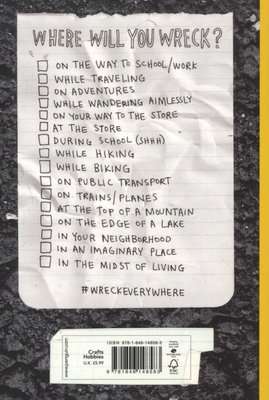 WHERE WILL YOU WRECK?
ON THE WAY TO SCHOOL/WORK
WHILE TRAVELING
ON ADVENTURES
WHILE WANDERING AIMLESSLY
ON YOUR WAY TO THE STORE
AT THE STORE
DURING SCHOOL (SHHH)
WHILE HIKING
WHILE BIKING
ON PUBLIC TRANSPORT
ON TRAINS/PLANES
AT THE TOP OF A MOUNTAIN
ON THE EDGE OF A LAKE
IN YOUR NEIGHBORHOOD
IN AN IMAGINARY PLACE
IN THE MIDST OF LIVING
#WRECKEVERYWHERE
Crafts
Hobbies
FSC